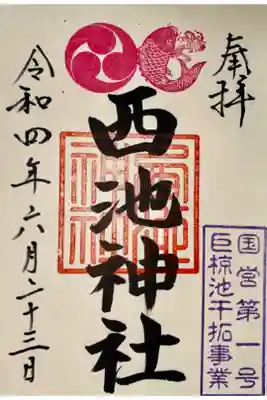 奉拝
西池神社
令和四年六月二十三日
国営第一号
巨椋池干拓事業